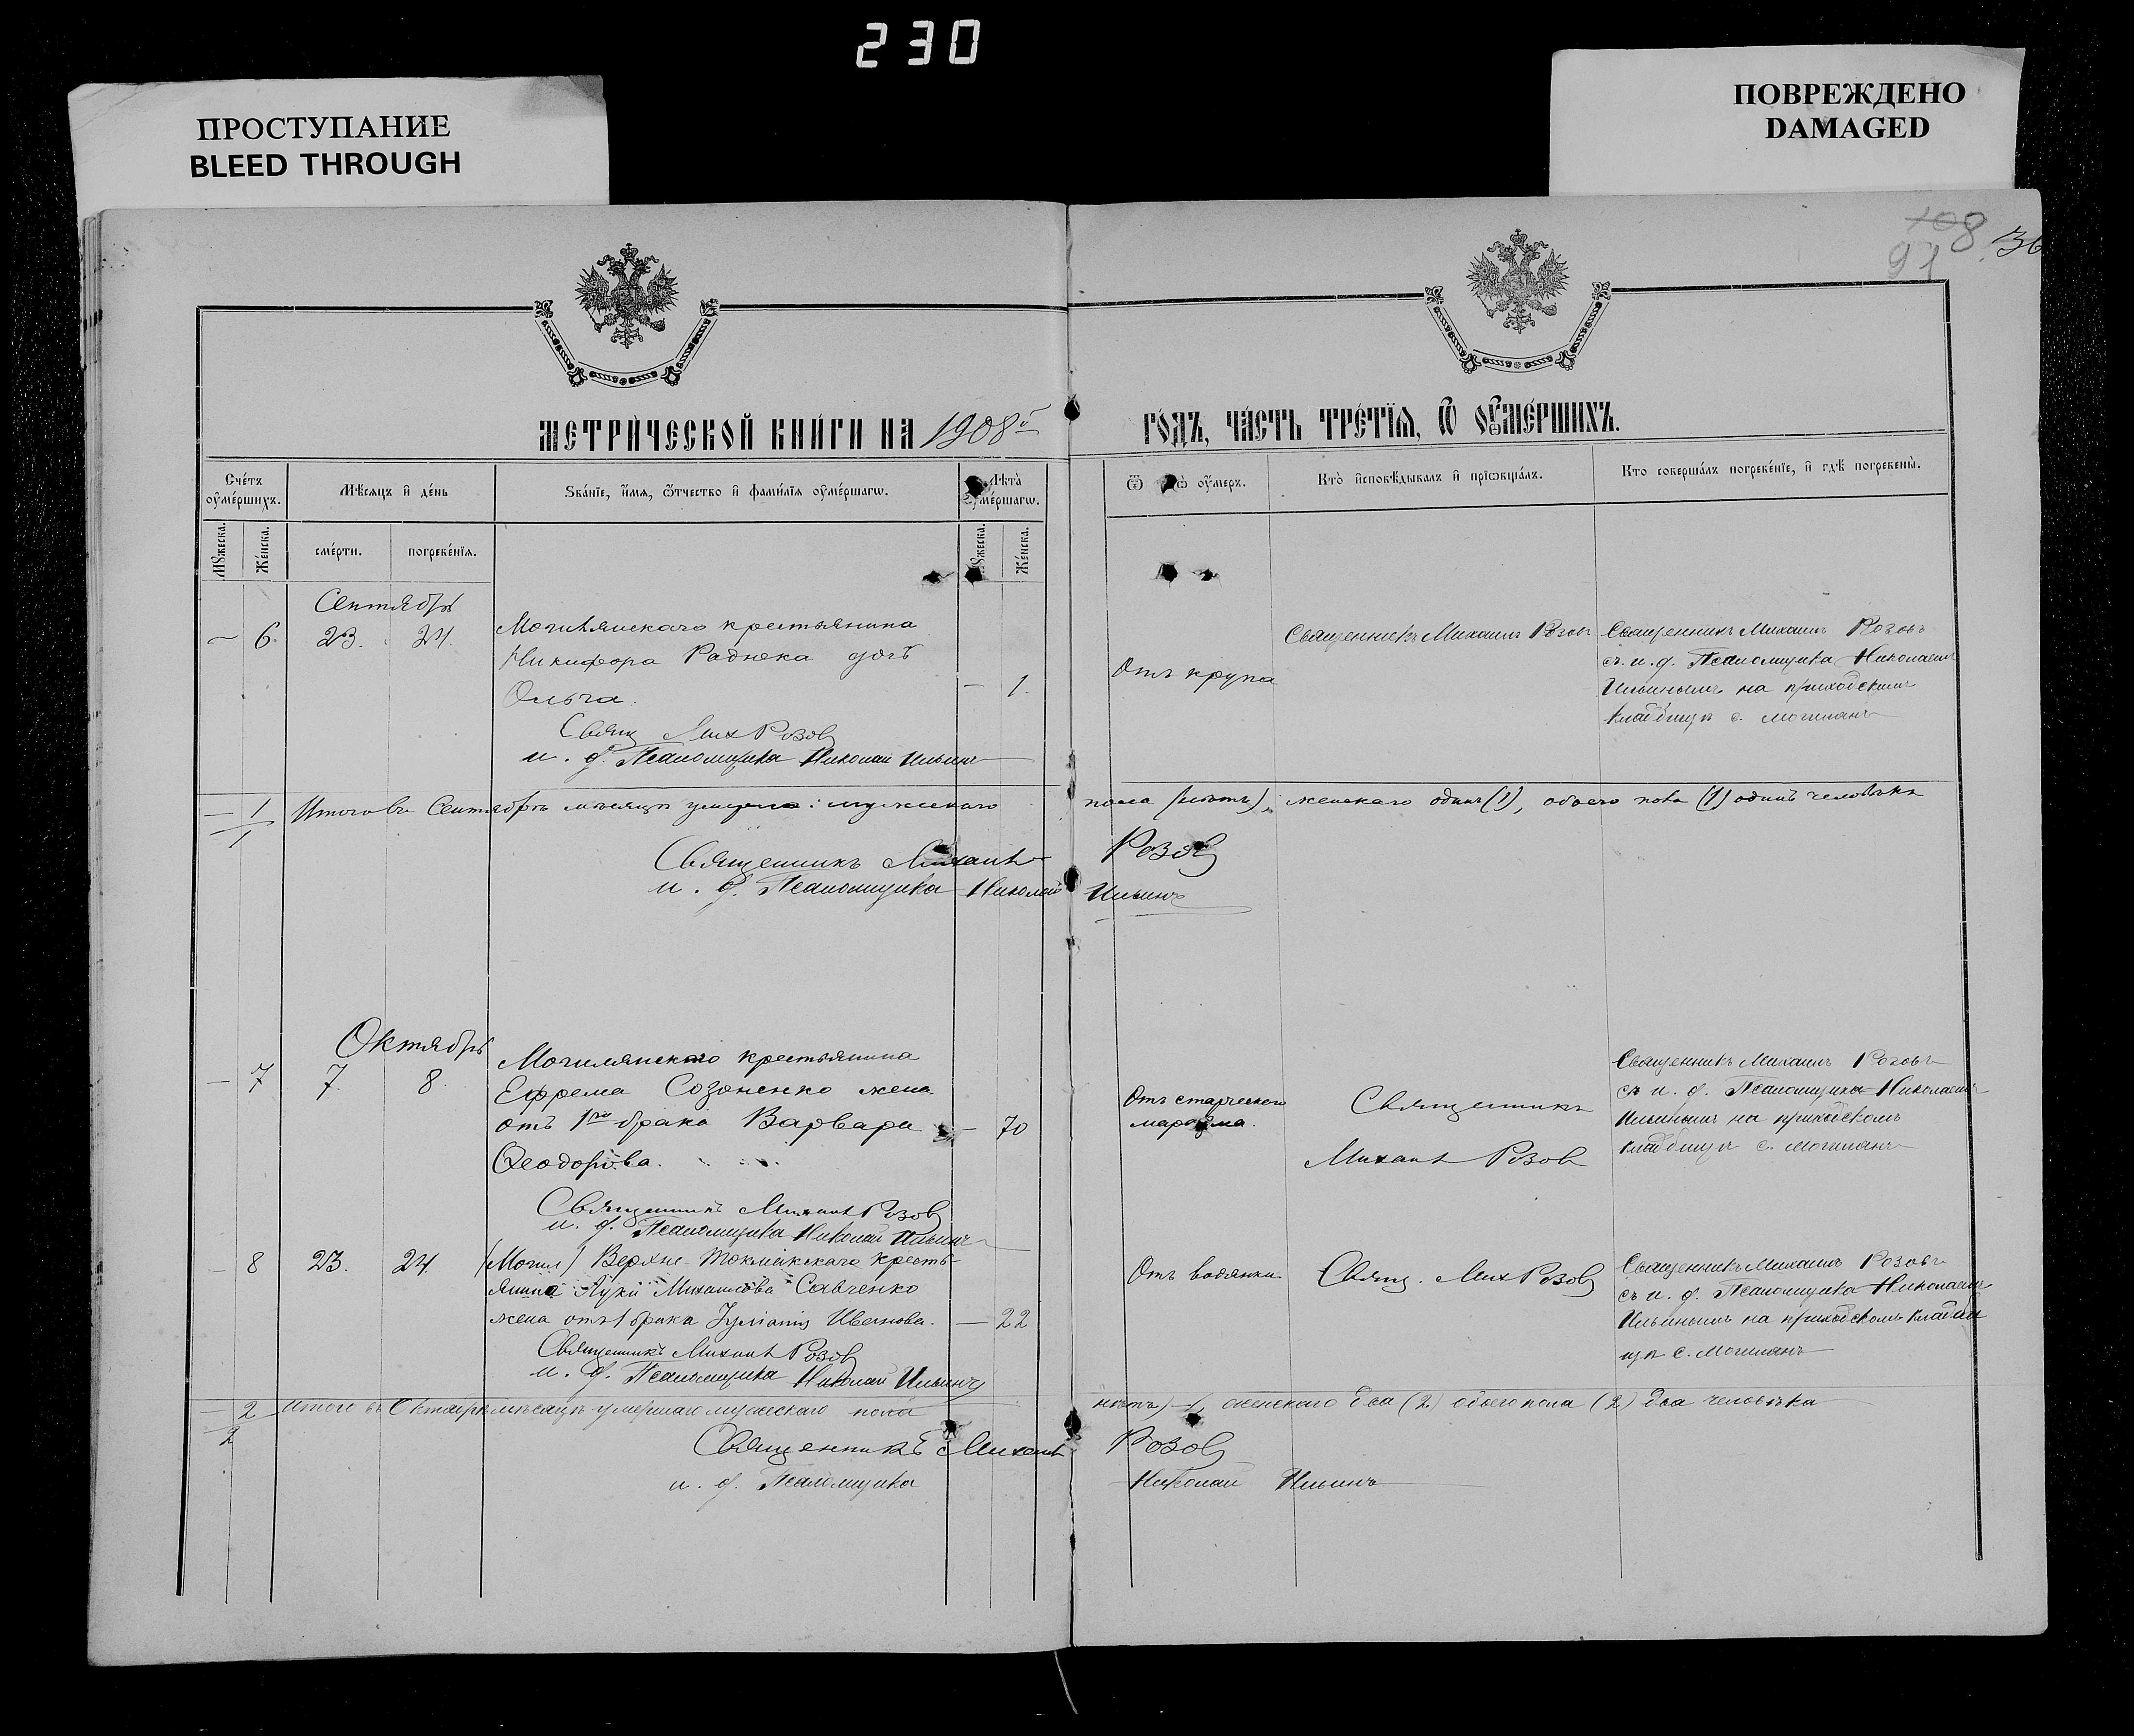 230
ПРОСТУПАНИЕ
BLEED THROUGH
ПОВРЕЖДЕНО
DAMAGED
108
91
МЕТРИ́ЧЕСКОЙ КНИ́ГИ НА 1908й ГО́ДЪ, ЧА́СТЬ ТРЕ́ТЇѦ, Ѿ ОУ҆МЕ́РШИХЪ.
Сче́тъ оу҆ме́ршихъ.
Мѣ́сяцъ и҆ де́нь
Ѕва́нїе, и҆́мя, ѻ҆́тчество и҆ фами́лїя оу҆ме́ршагѡ.
Лѣта̀ оу҆ме́ршагѡ.
Кто̀ и҆сповѣ́дывалъ и҆ прїѡбща́лъ.
Кто соверша́лъ погребе́нїе, и҆ гдѣ̀ погребены̀.
Мꙋ́жеска.
Же́нска.
сме́рти.
погребе́нїя.
Мꙋ́жеска.
Же́нска.
Сентябрь
— 6. 23. 24.
Могилянскаго крестьянина
Никифора Раднека дочь
Ольга.
— 1.
Свящ Мих Розов
и. д. Псаломщика Николай Ильинъ
Отъ крупа
Священникъ Михаилъ Розовъ
Священникъ Михаилъ Розовъ
съ и. д. Псаломщика Николаемъ
Ильинымъ на приходскомъ
кладбищѣ с. Могилянъ
— 1 Итого въ Сентябрѣ мѣсяцѣ умерло: мужескаго пола (нѣтъ), женскаго одинъ (1), обоего пола (1) одинъ человѣкъ
1
Священникъ Михаилъ Розов
и. д. Псаломщика Николай Ильинъ
Октябрь
— 7 7. 8.
Могилянскаго крестьянина
Ефрема Созоненко жена
отъ 1го брака Варвара
Ѳеодорова.
— 70
Священникъ Михаил Розов
и. д. Псаломщика Николай Ильинъ
Отъ старческаго
маразма.
Священникъ
Михаил Розов
Священникъ Михаилъ Розовъ
съ и. д. Псаломщика Николаемъ
Ильинымъ на приходскомъ
кладбищѣ с. Могилянъ
— 8 23. 24.
(Могил) Верхне-Токмакскаго кресть-
янина Луки Михаилова Савченко
жена отъ 1 брака Іуліанія Иванова.
— 22
Священникъ Михаил Розов
и. д. Псаломщика Николай Ильинъ
Отъ водянки.
Свящ. Мих Розов
Священникъ Михаилъ Розовъ
съ и. д. Псаломщика Николаемъ
Ильинымъ на приходскомъ кладби
щѣ с. Могилянъ
— 2 Итого въ Октябрѣ мѣсяцѣ умершаго мужескаго пола нѣтъ) —, женскаго два (2) обоего пола (2) два человѣка
2
Священникъ Михаил Розов
и. д. Псаломщика Николай Ильинъ